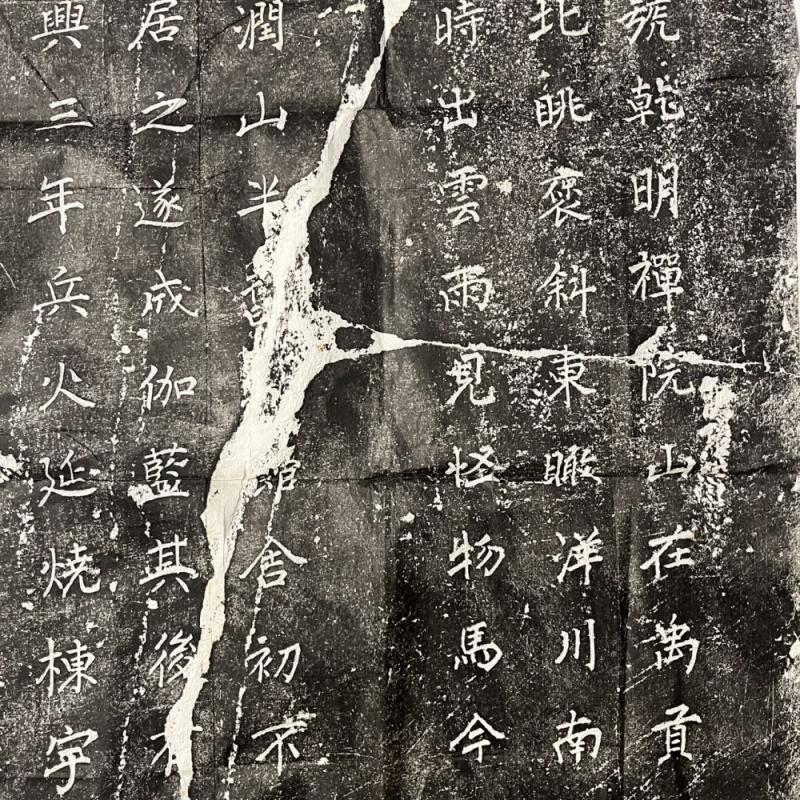 號乾明禪院山在禹貢
北眺褒斜東瞰洋川南
時出雲雨見怪物焉今
潤山半舍初不
居之遂成伽藍其後有
興三年兵火延燒棟宇